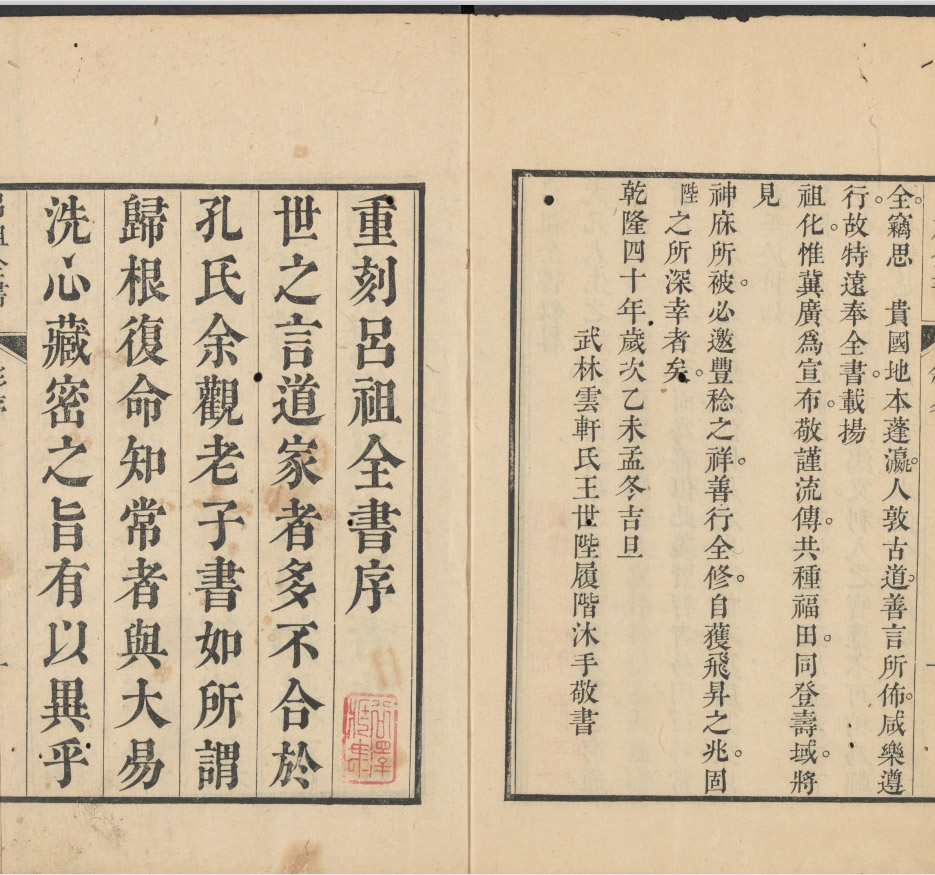 全竊思　貴國地本蓬瀛。人敦古道。善言所佈。咸樂遵
行。故特遠奉全書。載揚
祖化。惟冀廣爲宣布。敬謹流傳。共種福田。同登壽域。將
見
神庥所被。必邀豐稔之祥。善行全修。自獲飛昇之兆。固
陛之所深幸者矣。
乾隆四十年歲次乙未孟冬吉旦
武林雲軒氏王世陛履階沐手敬書
重刻呂祖全書序
世之言道家者多不合於
孔氏余觀老子書如所謂
歸根復命知常者與大易
洗心藏密之旨有以異乎